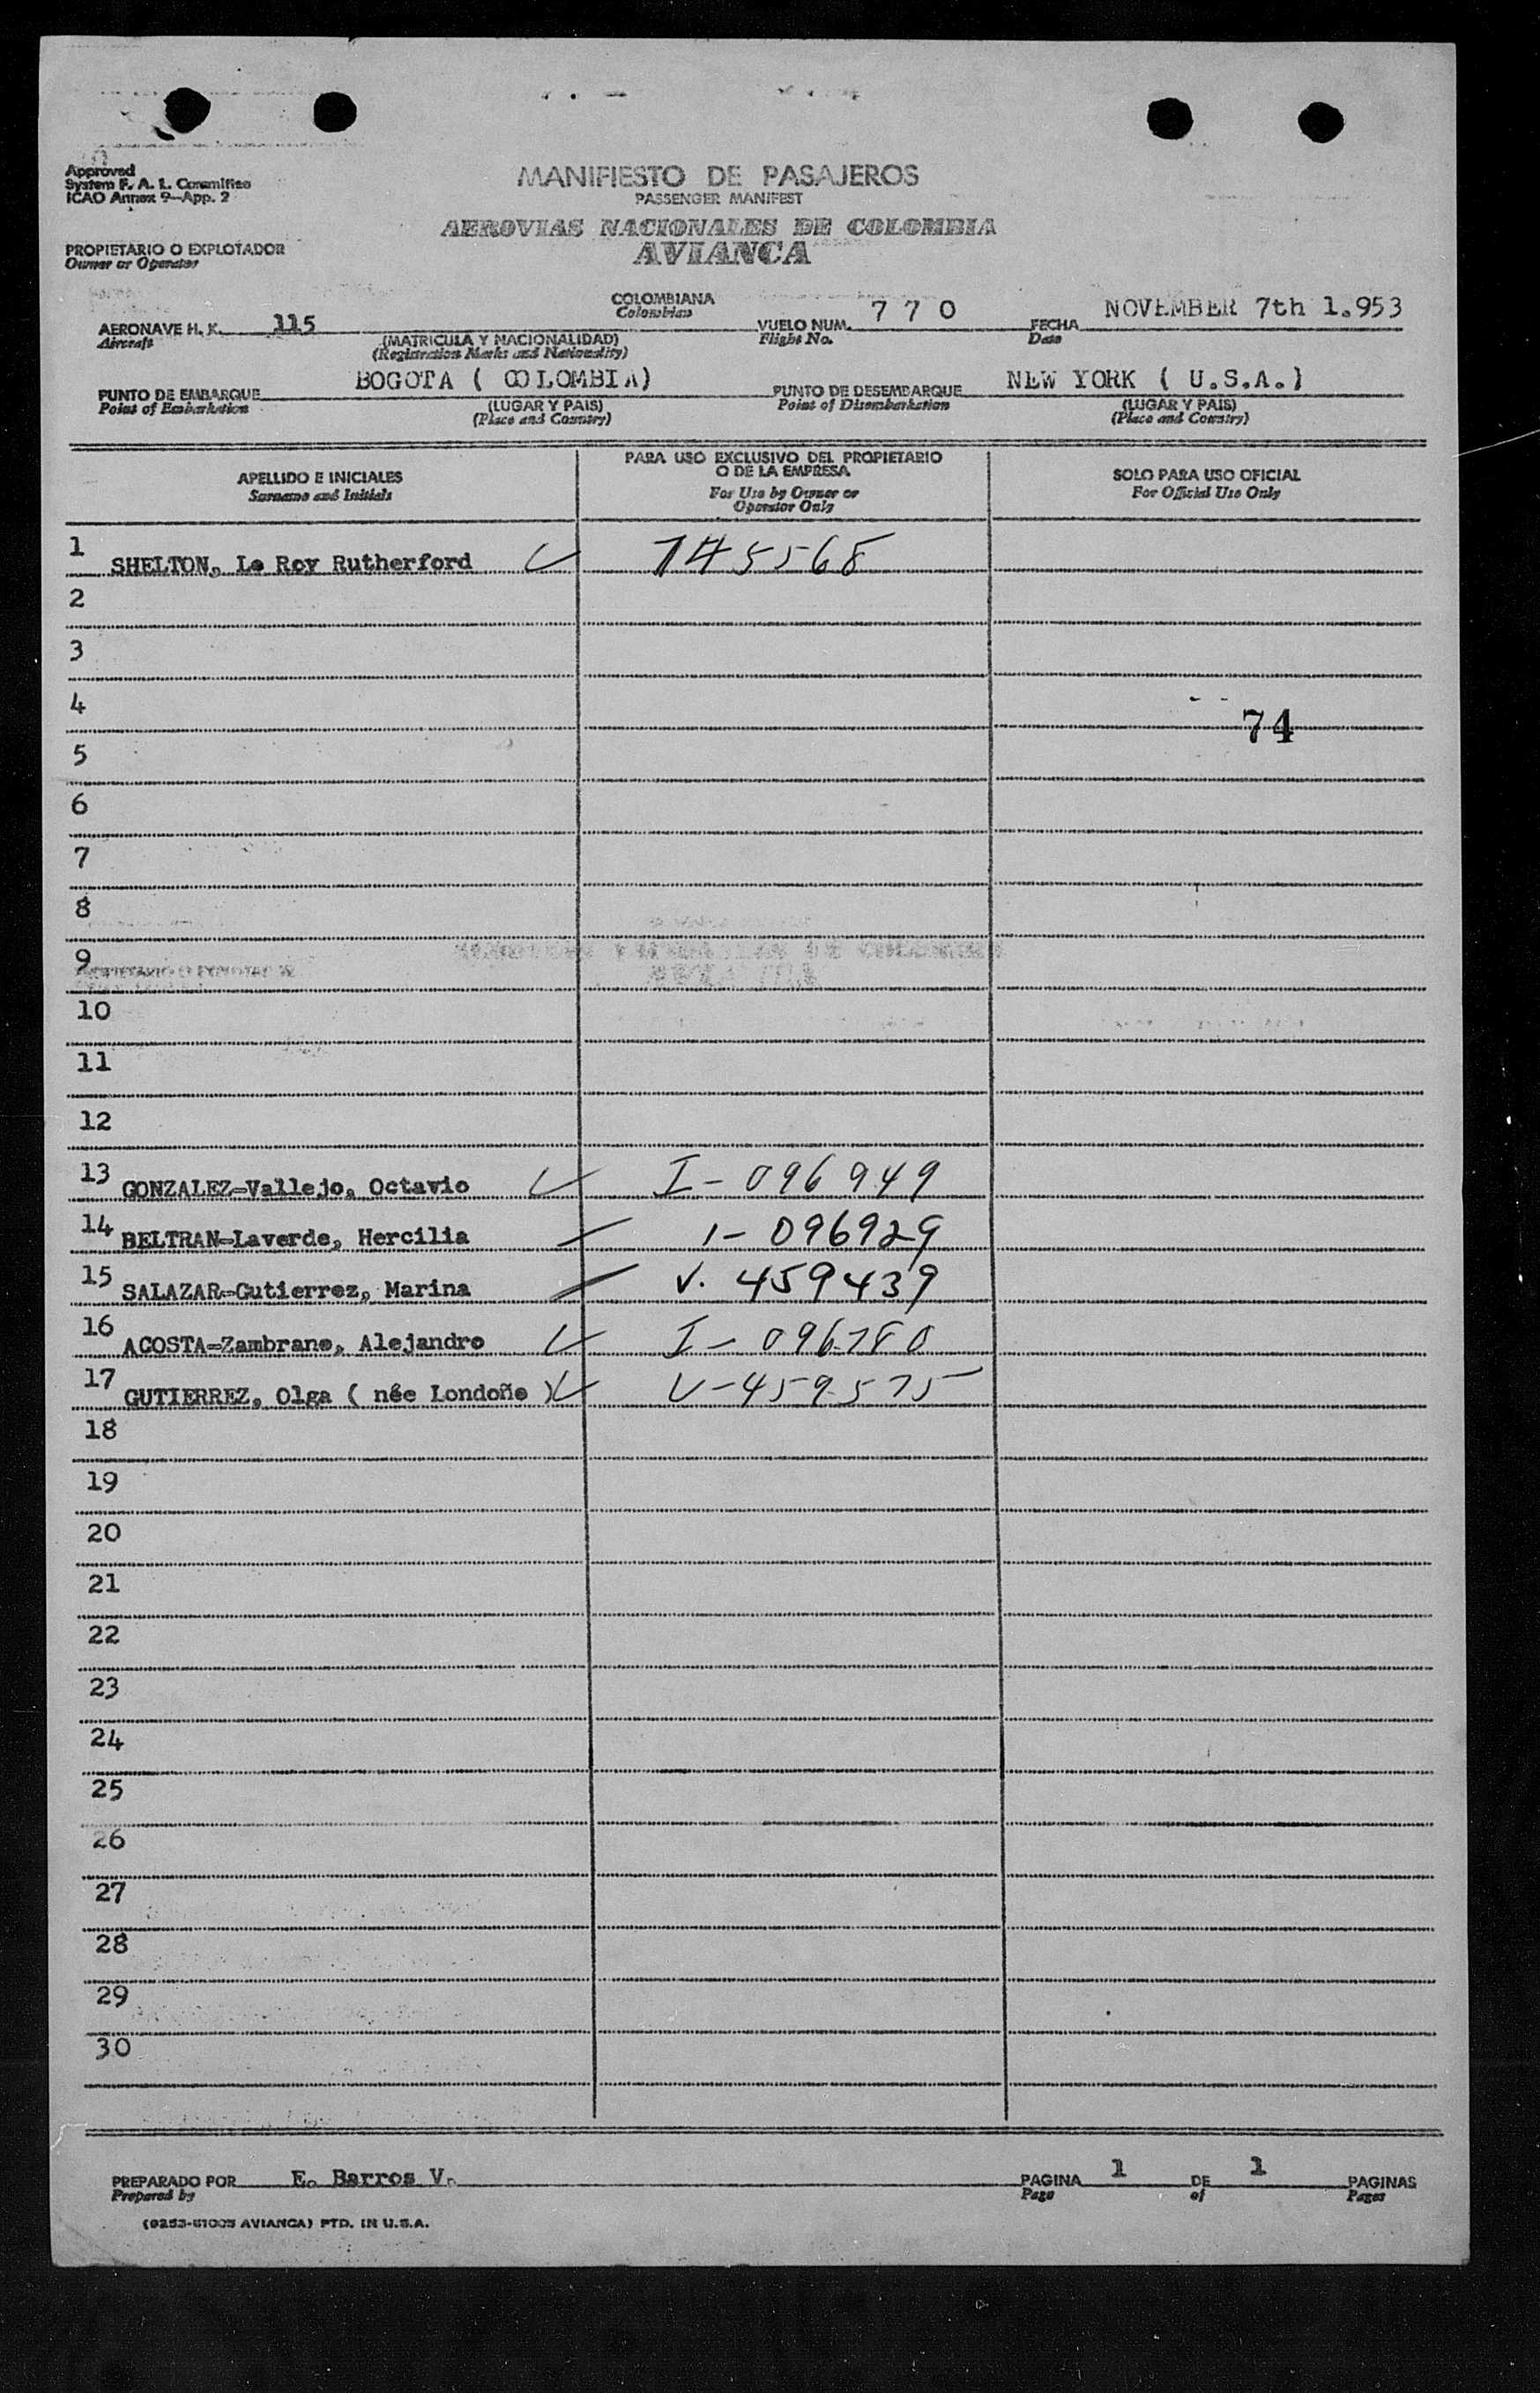 Approved
System F. A. L. Committee
ICAO Annex 9-App. 2
MANIFIESTO DE PASAJEROS
PASSENGER MANIFEST
AEROVIAS NACIONALES DE COLOMBIA
AVIANCA
PROPIETARIO O EXPLOTADOR
Owner or Operator
AERONAVE H. K. 115 COLOMBIANA VUELO NUM. 7 7 0 FECHA NOVEMBER 7th 1.953
Aircraft Colombian Flight No. Date
(MATRICULA Y NACIONALIDAD)
(Registration Marks and Nationality)
PUNTO DE EMBARQUE BOGOTA ( COLOMBIA) PUNTO DE DESEMBARQUE NEW YORK ( U.S.A.)
Point of Embarkation (LUGAR Y PAIS) Point of Disembarkation (LUGAR Y PAIS)
(Place and Country) (Place and Country)
APELLIDO E INICIALES
Surname and Initials
PARA USO EXCLUSIVO DEL PROPIETARIO
O DE LA EMPRESA
For Use by Owner or
Operator Only
SOLO PARA USO OFICIAL
For Official Use Only
1 SHELTON, Le Roy Rutherford 745568
2
3
4
74
5
6
7
8
9
10
11
12
13 GONZALEZ-Vallejo, Octavio I-096949
14 BELTRAN-Laverde, Hercilia 1-096929
15 SALAZAR-Gutierrez, Marina V. 459439
16 ACOSTA-Zambrano, Alejandro I-096780
17 GUTIERREZ, Olga ( née Londoño ) V-459575
18
19
20
21
22
23
24
25
26
27
28
29
30
PREPARADO POR E. Barros V. PAGINA 1 DE 1 PAGINAS
Prepared by Page of Pages
(9253-51005 AVIANCA) PTD. IN U.S.A.